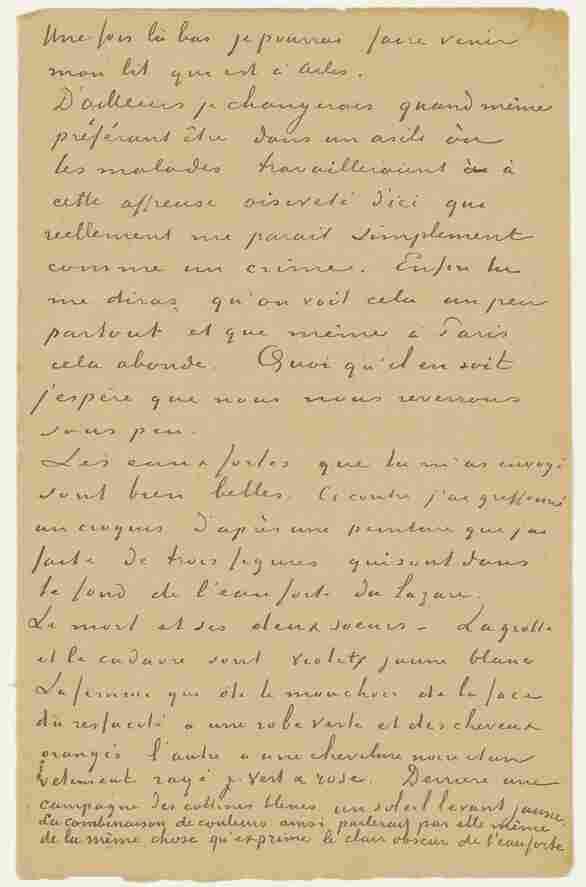 Une fois là bas je pourrai faire venir
mon lit qui est à Arles.
D'ailleurs je changerais quand même
préférant être dans un asile où
les malades travailleraient à
cette affreuse oisiveté d'ici qui
reellement me parait simplement
comme un crime. Enfin tu
me diras, qu'on voit cela un peu
partout et que même à Paris
cela abonde. Quoi qu'il en soit
j'espère que nous nous reverrons
sous peu.
Les eaux fortes que tu m'as envoyé
sont bien belles. Ci contre j'ai griffonné
un croquis d'après une peinture que j'ai
faite de trois figures qui sont dans
le fond de l'eau forte du Lazare.
Le mort et ses deux soeurs – La grotte
et le cadavre sont violet jaune blanc
La femme qui ôte le mouchoir de la face
du resfucité a une robe verte et des cheveux
orangés l'autre a une chevelure noire et un
vêtement rayé vert & rose. Derrière une
campagne des collines bleues un soleil levant jaune.
La combinaison de couleurs ainsi parlerait par elle même
de la même chose qu'exprime le clair obscur de l'eau forte